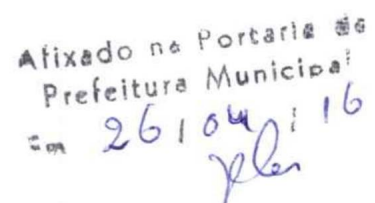 Afixado na Portaria da
Prefeitura Municipal
Em 26 / 04 / 16